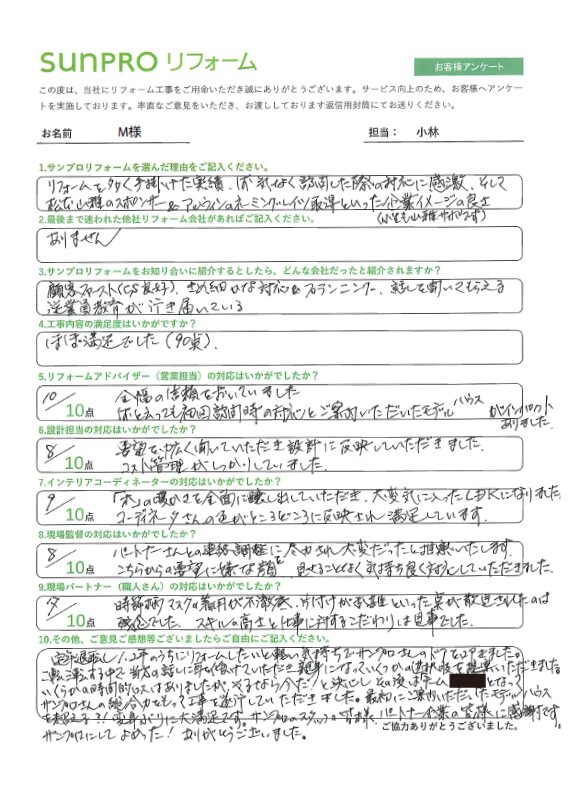 SUNPRO リフォーム
お客様アンケート
この度は、当社にリフォーム工事をご用命いただき誠にありがとうございます。サービス向上のため、お客様へアンケー
トを実施しております。率直なご意見をいただき、お渡ししております返信用封筒にてお送りください。
お名前 M様 担当： 小林
1.サンプロリフォームを選んだ理由をご記入ください。
リフォームを多く手掛けた実績、何気なく訪問した際の対応に感激、そして
松本山雅のスポンサー& アルウィンのネーミングライツ取得といった企業イメージの良さ
(私も山雅サポです)
2.最後まで迷われた他社リフォーム会社があればご記入ください。
ありません
3.サンプロリフォームをお知り合いに紹介するとしたら、どんな会社だったと紹介されますか？
顧客ファースト(CS良好)、きめ細かな対応&プランニング、話しを聞いてもらえる
従業員教育が行き届いている
4.工事内容の満足度はいかがですか？
ほぼ満足でした (90点)．
5.リフォームアドバイザー（営業担当）の対応はいかがでしたか？
10／10点 全幅の信頼をおいていました
何と云っても初回訪問時の対応とご案内いただいたモデルハウスがインパクトありました．
6.設計担当の対応はいかがでしたか？
8／10点 要望を中広く聞いていただき設計に反映していただきました．
コスト管理がしっかりしていました．
7.インテリアコーディネーターの対応はいかがでしたか？
9／10点 「木」の暖かさを全面に醸し出していただき、大変気に入ったLDKになりました
コーディネータさんの色がところどころに反映され満足しています．
8.現場監督の対応はいかがでしたか？
8／10点 パートナーさんとの連絡調整に尽力され大変だったと推察いたします．
こちらからの要望に嫌な顔を見せることなく気持ち良く対応していただきました．
9.現場パートナー（職人さん）の対応はいかがでしたか？
／10点 時節柄マスクの着用が不徹底、片付けがお雑といった点が散見されたのは
残念でした．スキルの高さと仕事に対するこだわりは見事でした．
10.その他、ご意見ご感想等ございましたらご自由にご記入ください。
定年退職し1、2年のうちにリフォームしたいと軽い気持ちでサンプロさんのドアをたたきました。
二転三転する中で当方の話しに耳を傾けていただき親身になっていくつかの選択肢を提案いただきました。
いくらかの時間的ロスはありましたが、やるなら今だ！と決心しその後はチーム となって
サンプロさんの総合力をもって工事を進行していただきました．最初にご案内いただいたモデルハウス
を超える？！変身ぶりに大満足です．サンプロのスタッフの皆様、パートナー企業の皆様に感謝です．
サンプロにしてよかった！ ありがとうございました。
ご協力ありがとうございました。